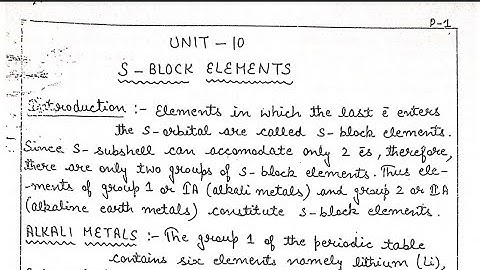 P-1
UNIT - 10
S - BLOCK ELEMENTS
Introduction :- Elements in which the last ē enters
the S-orbital are called S-block elements.
Since S- subshell can accomodate only 2 ēs, therefore,
there are only two groups of S-block elements. Thus ele-
ments of group 1 or IA (alkali metals) and group 2 or IIA
(alkaline earth metals) constitute S-block elements.
ALKALI METALS :- The group 1 of the periodic table
contains six elements namely lithium (Li),